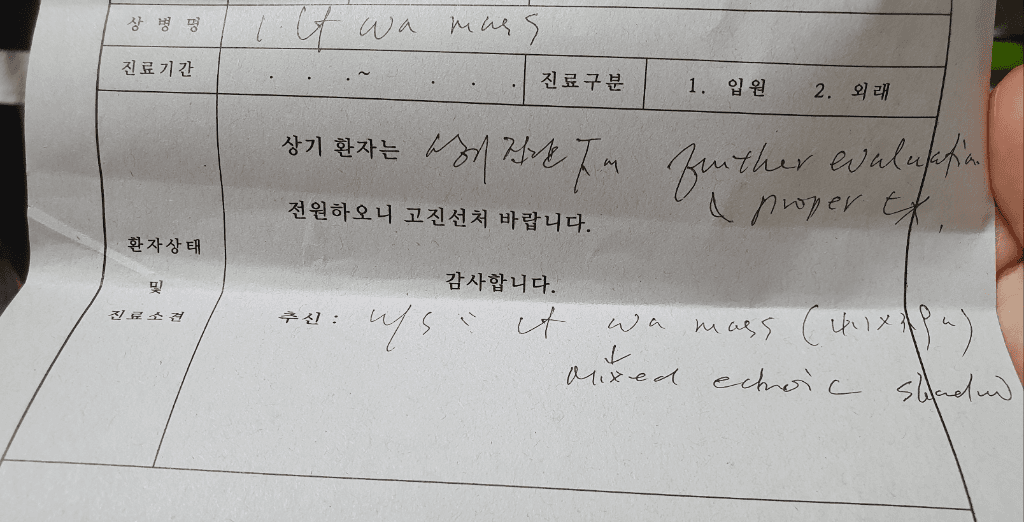 상 병 명 1. Lt wa mass
진료기간 . . .~ . . . 진료구분 1. 입원 2. 외래
상기 환자는 상해 진단 for further evaluation
& proper tx.
전원하오니 고진선처 바랍니다.
환자상태
감사합니다.
및
진료소견 추신 : u/s : Lt wa mass
↓
mixed echoic shadow